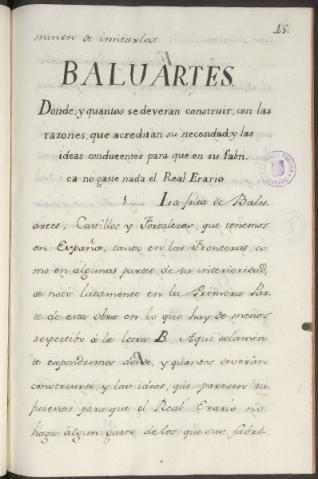 15.
minen de imitarlas.
BALUARTES.
Donde, y quantos se deveran construir, con las
razones, que acreditan su necesidad, y las
ideas conducentes para que en su fabri-
ca no gaste nada el Real Erario
1. La falta de Balu-
artes, Castillos y Fortalezas, que tenemos
en España, tanto en las Fronteras, co-
mo en algunas partes de su interioridad,
se hizo latamente en la Primera Par-
te de esta obra en lo que hay de menos
respectibo á la letra B. Aqui solamen-
te expondremos donde, y quantos deverán
construirse y las ideas, que parescen su-
perenes para que el Real Erario no
haga algun gasto de los que sus fabri-